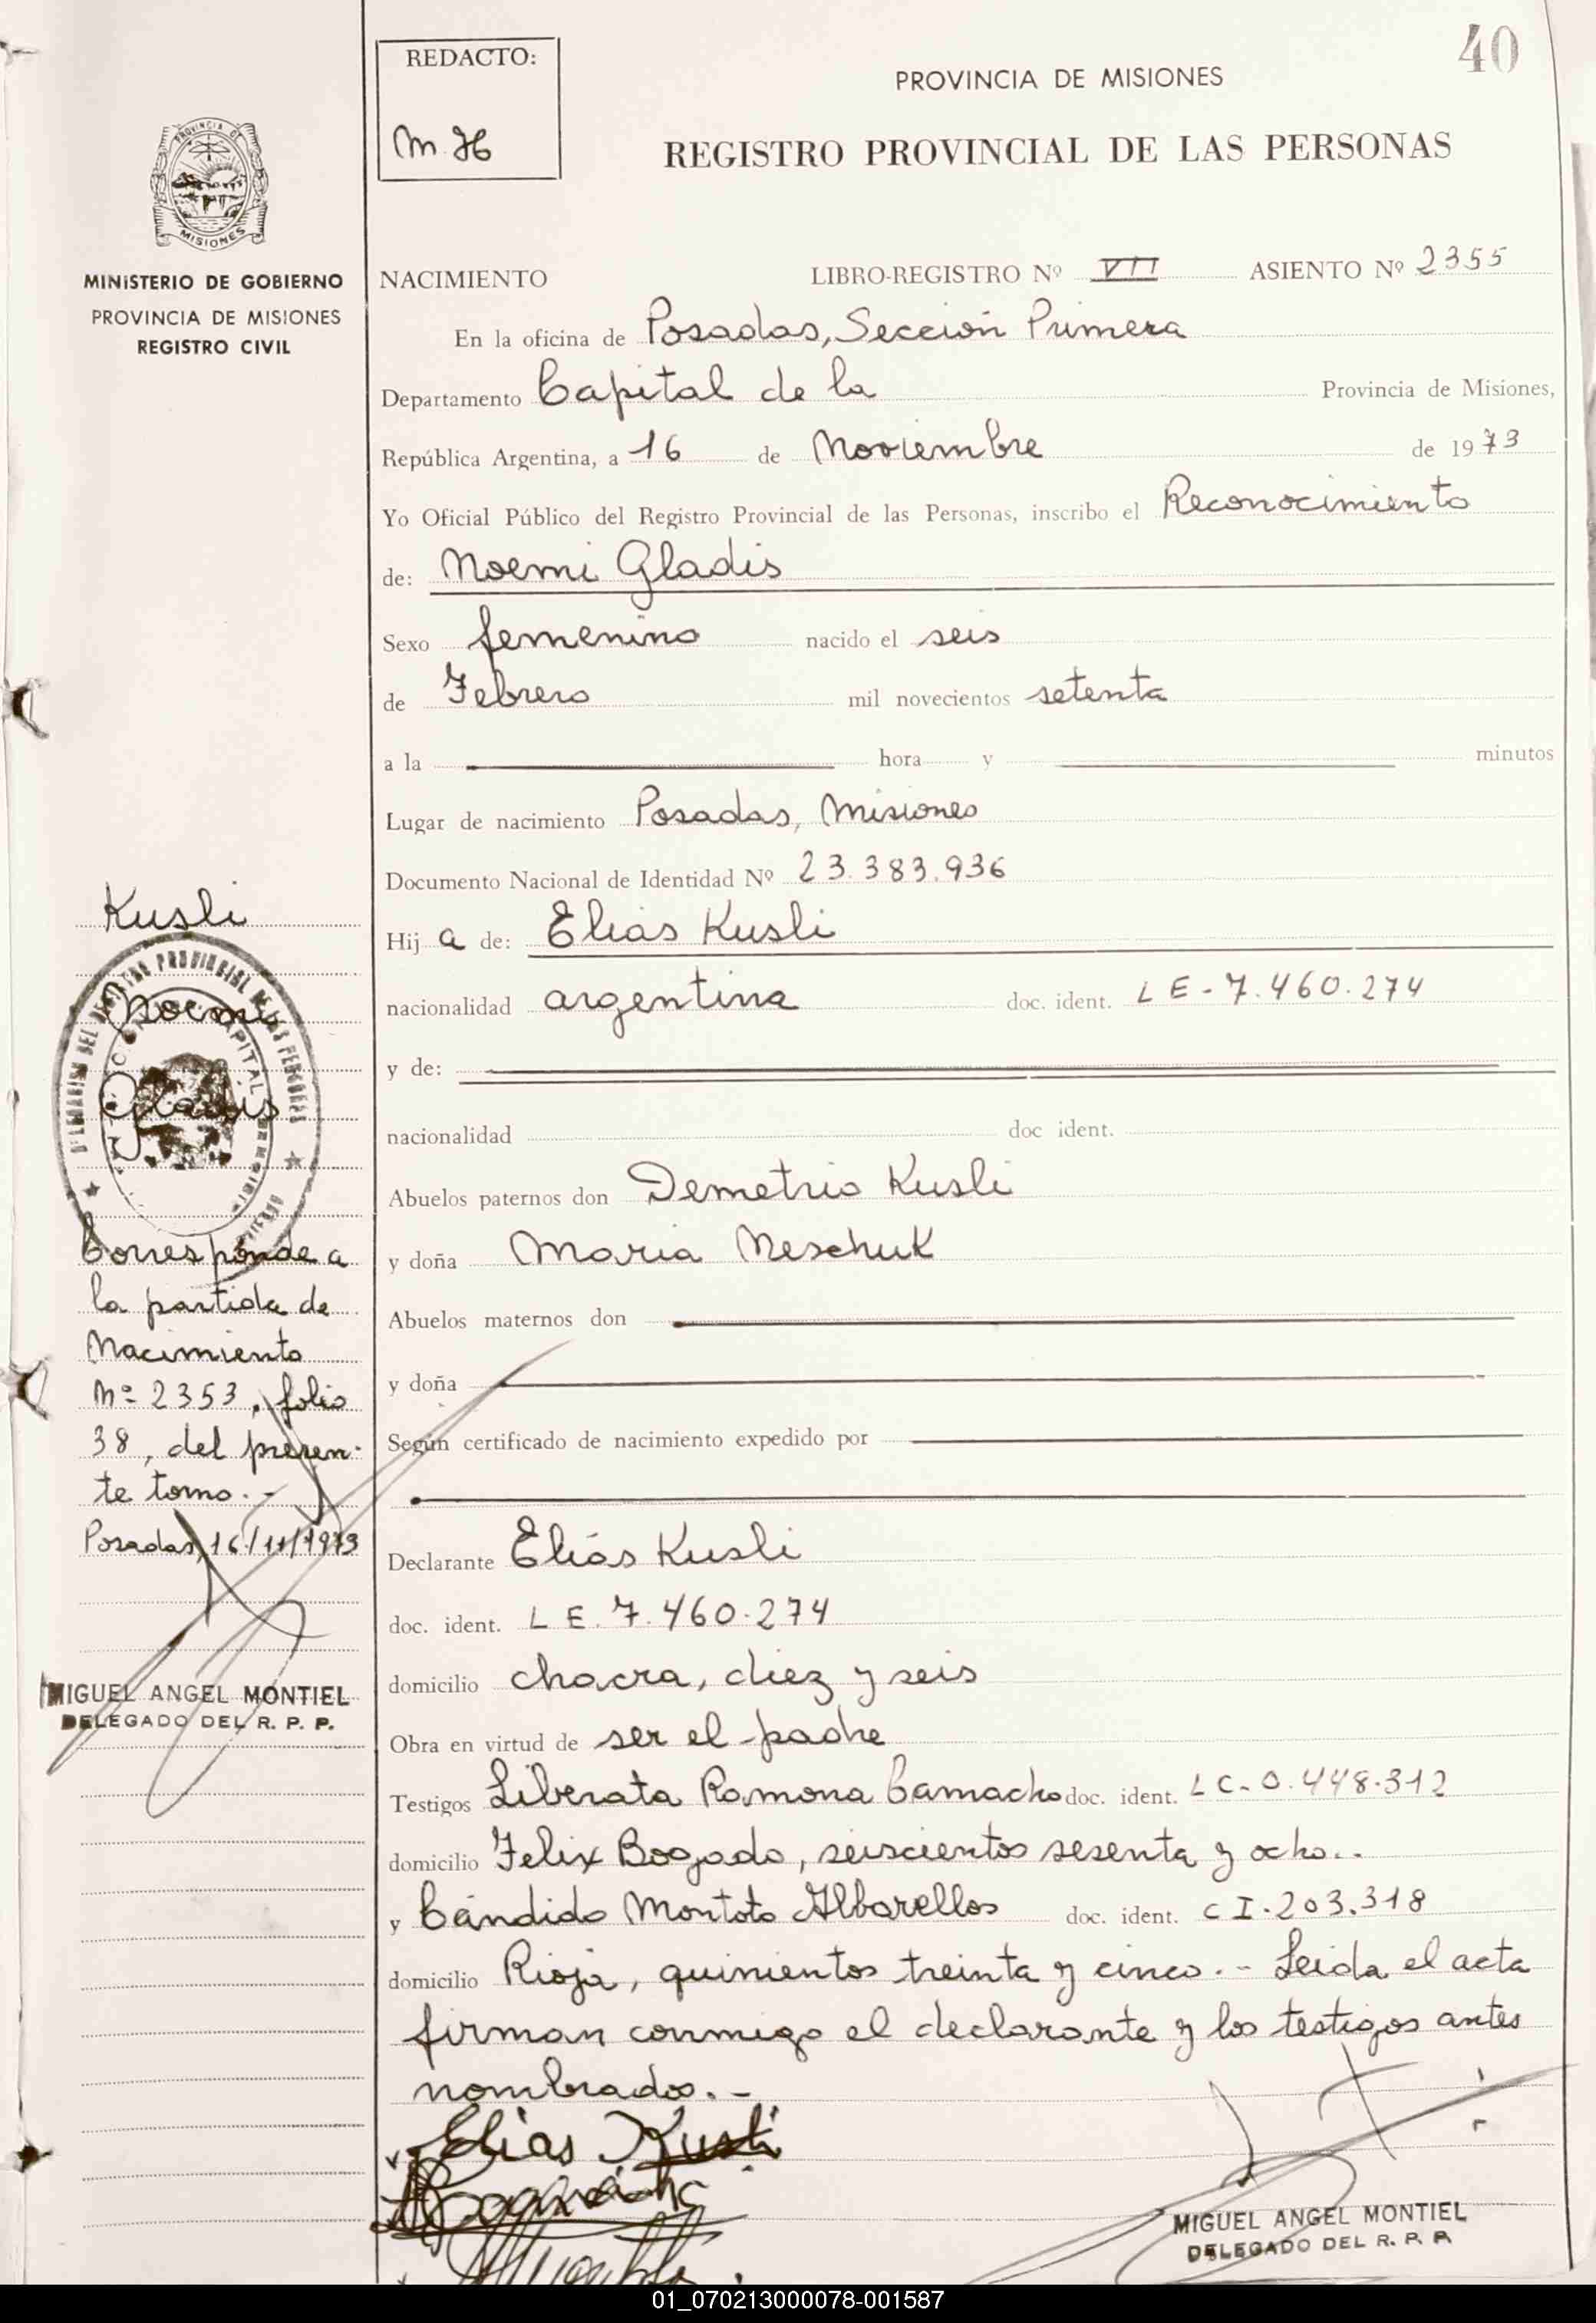 40
REDACTO:
M. H
PROVINCIA DE MISIONES
REGISTRO PROVINCIAL DE LAS PERSONAS
PROVINCIA DE
MISIONES
MINISTERIO DE GOBIERNO
PROVINCIA DE MISIONES
REGISTRO CIVIL
NACIMIENTO LIBRO-REGISTRO Nº VII ASIENTO Nº 2355
En la oficina de Posadas, Sección Primera
Departamento Capital de la Provincia de Misiones,
República Argentina, a 16 de Noviembre de 1973
Yo Oficial Público del Registro Provincial de las Personas, inscribo el Reconocimiento
de: Noemi Gladis
Sexo femenino nacido el seis
de Febrero mil novecientos setenta
a la hora y minutos
Lugar de nacimiento Posadas, Misiones
Documento Nacional de Identidad Nº 23.383.936
Hij a de: Elias Kusli
nacionalidad argentina doc. ident. L E - 7.460.274
y de:
nacionalidad doc ident.
Abuelos paternos don Demetrio Kusli
y doña Maria Meschuk
Abuelos maternos don
y doña
Según certificado de nacimiento expedido por
Declarante Elías Kusli
doc. ident. L E. 7.460.274
domicilio chacra, diez y seis
Obra en virtud de ser el padre
Testigos Liberata Ramona Camacho doc. ident. L C - 0.448.312
domicilio Felix Bogado, seiscientos sesenta y ocho..
y Cándido Montoto Albarellos doc. ident. C I. 203.318
domicilio Rioja, quinientos treinta y cinco.- Leida el acta
firman conmigo el declarante y los testigos antes
nombrados.-
Elias Kusli
MIGUEL ANGEL MONTIEL
DELEGADO DEL R. P. P.
Kusli
Noemi
Gladis
Corresponde a
la partida de
Nacimiento
Nº 2353, folio
38, del presen-
te tomo.-
Posadas, 16/11/1973
MIGUEL ANGEL MONTIEL
DELEGADO DEL R. P. P.
01_070213000078-001587